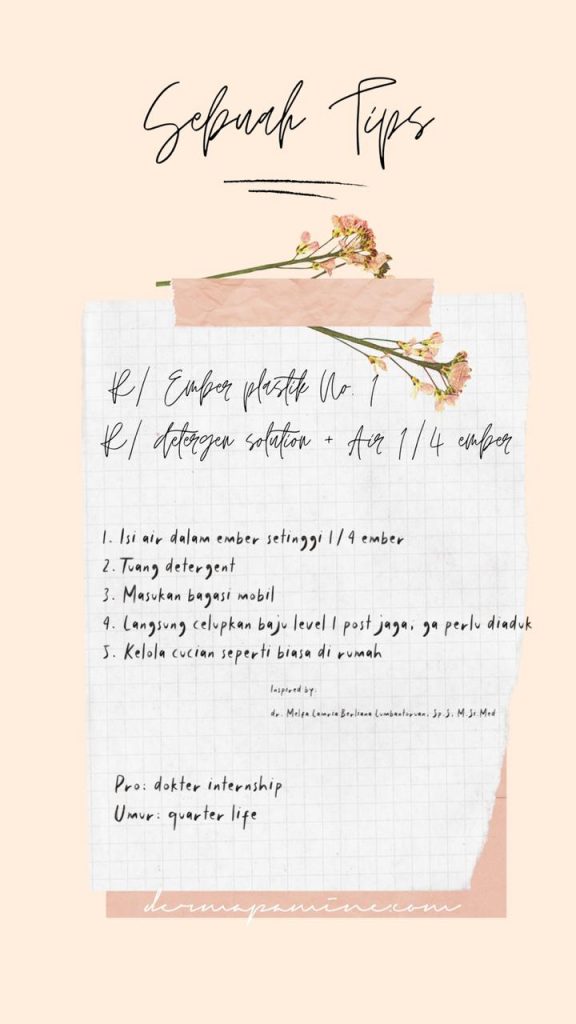 Sebuah Tips
R/ Ember plastik No. 1
R/ detergen solution + Air 1/4 ember
1. Isi air dalam ember setinggi 1/4 ember
2. Tuang detergent
3. Masukan bagasi mobil
4. Langsung celupkan baju level 1 post jaga, ga perlu diaduk
5. Kelola cucian seperti biasa di rumah
Inspired by:
dr. Melfa Lamria Berliana Lumbantoruan, Sp.S, M.Si.Med
Pro: dokter internship
Umur: quarter life
dermapamine.com